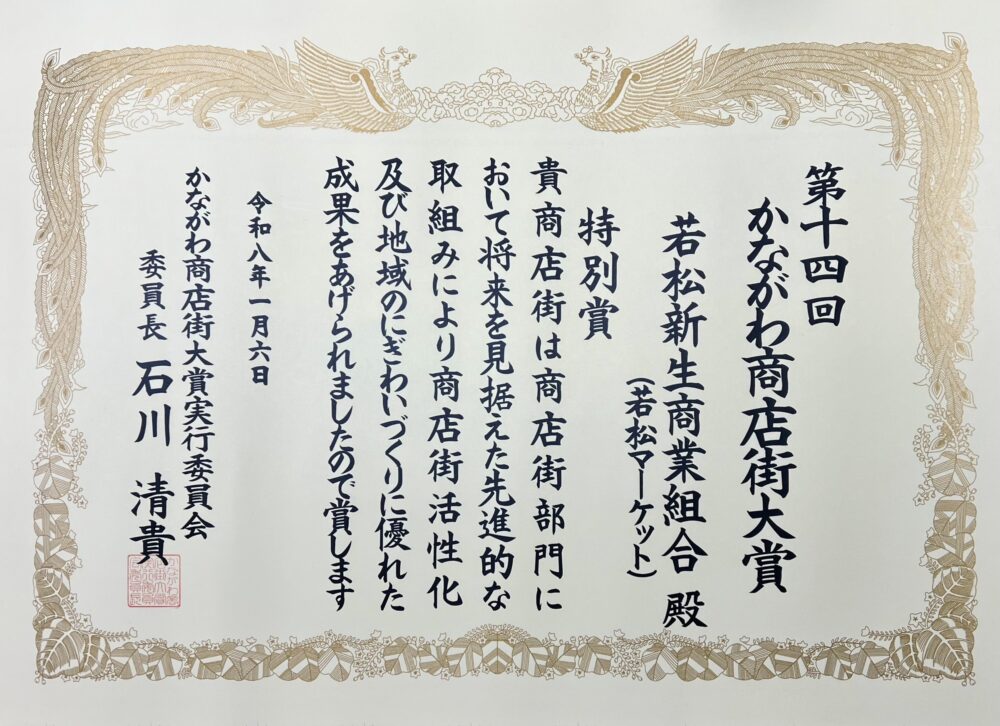 第十四回
かながわ商店街大賞
若松新生商業組合 殿
(若松マーケット)
特別賞
貴商店街は商店街部門に
おいて将来を見据えた先進的な
取組みにより商店街活性化
及び地域のにぎわいづくりに優れた
成果をあげられましたので賞します
令和八年一月六日
かながわ商店街大賞実行委員会
委員長 石川 清貴